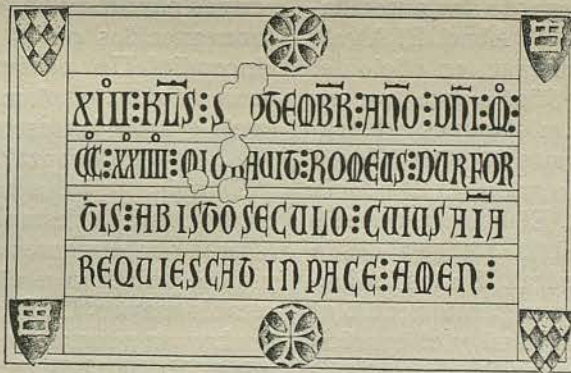 XIII:KLS:SEPTEMBR:ANO:DNI:M:
CCC:XXIIII:MIGRAVIT:ROMEUS:DURFOR
TIS:AB ISTO SECULO:CUIUS AIA
REQUIESCAT IN PACE:AMEN: